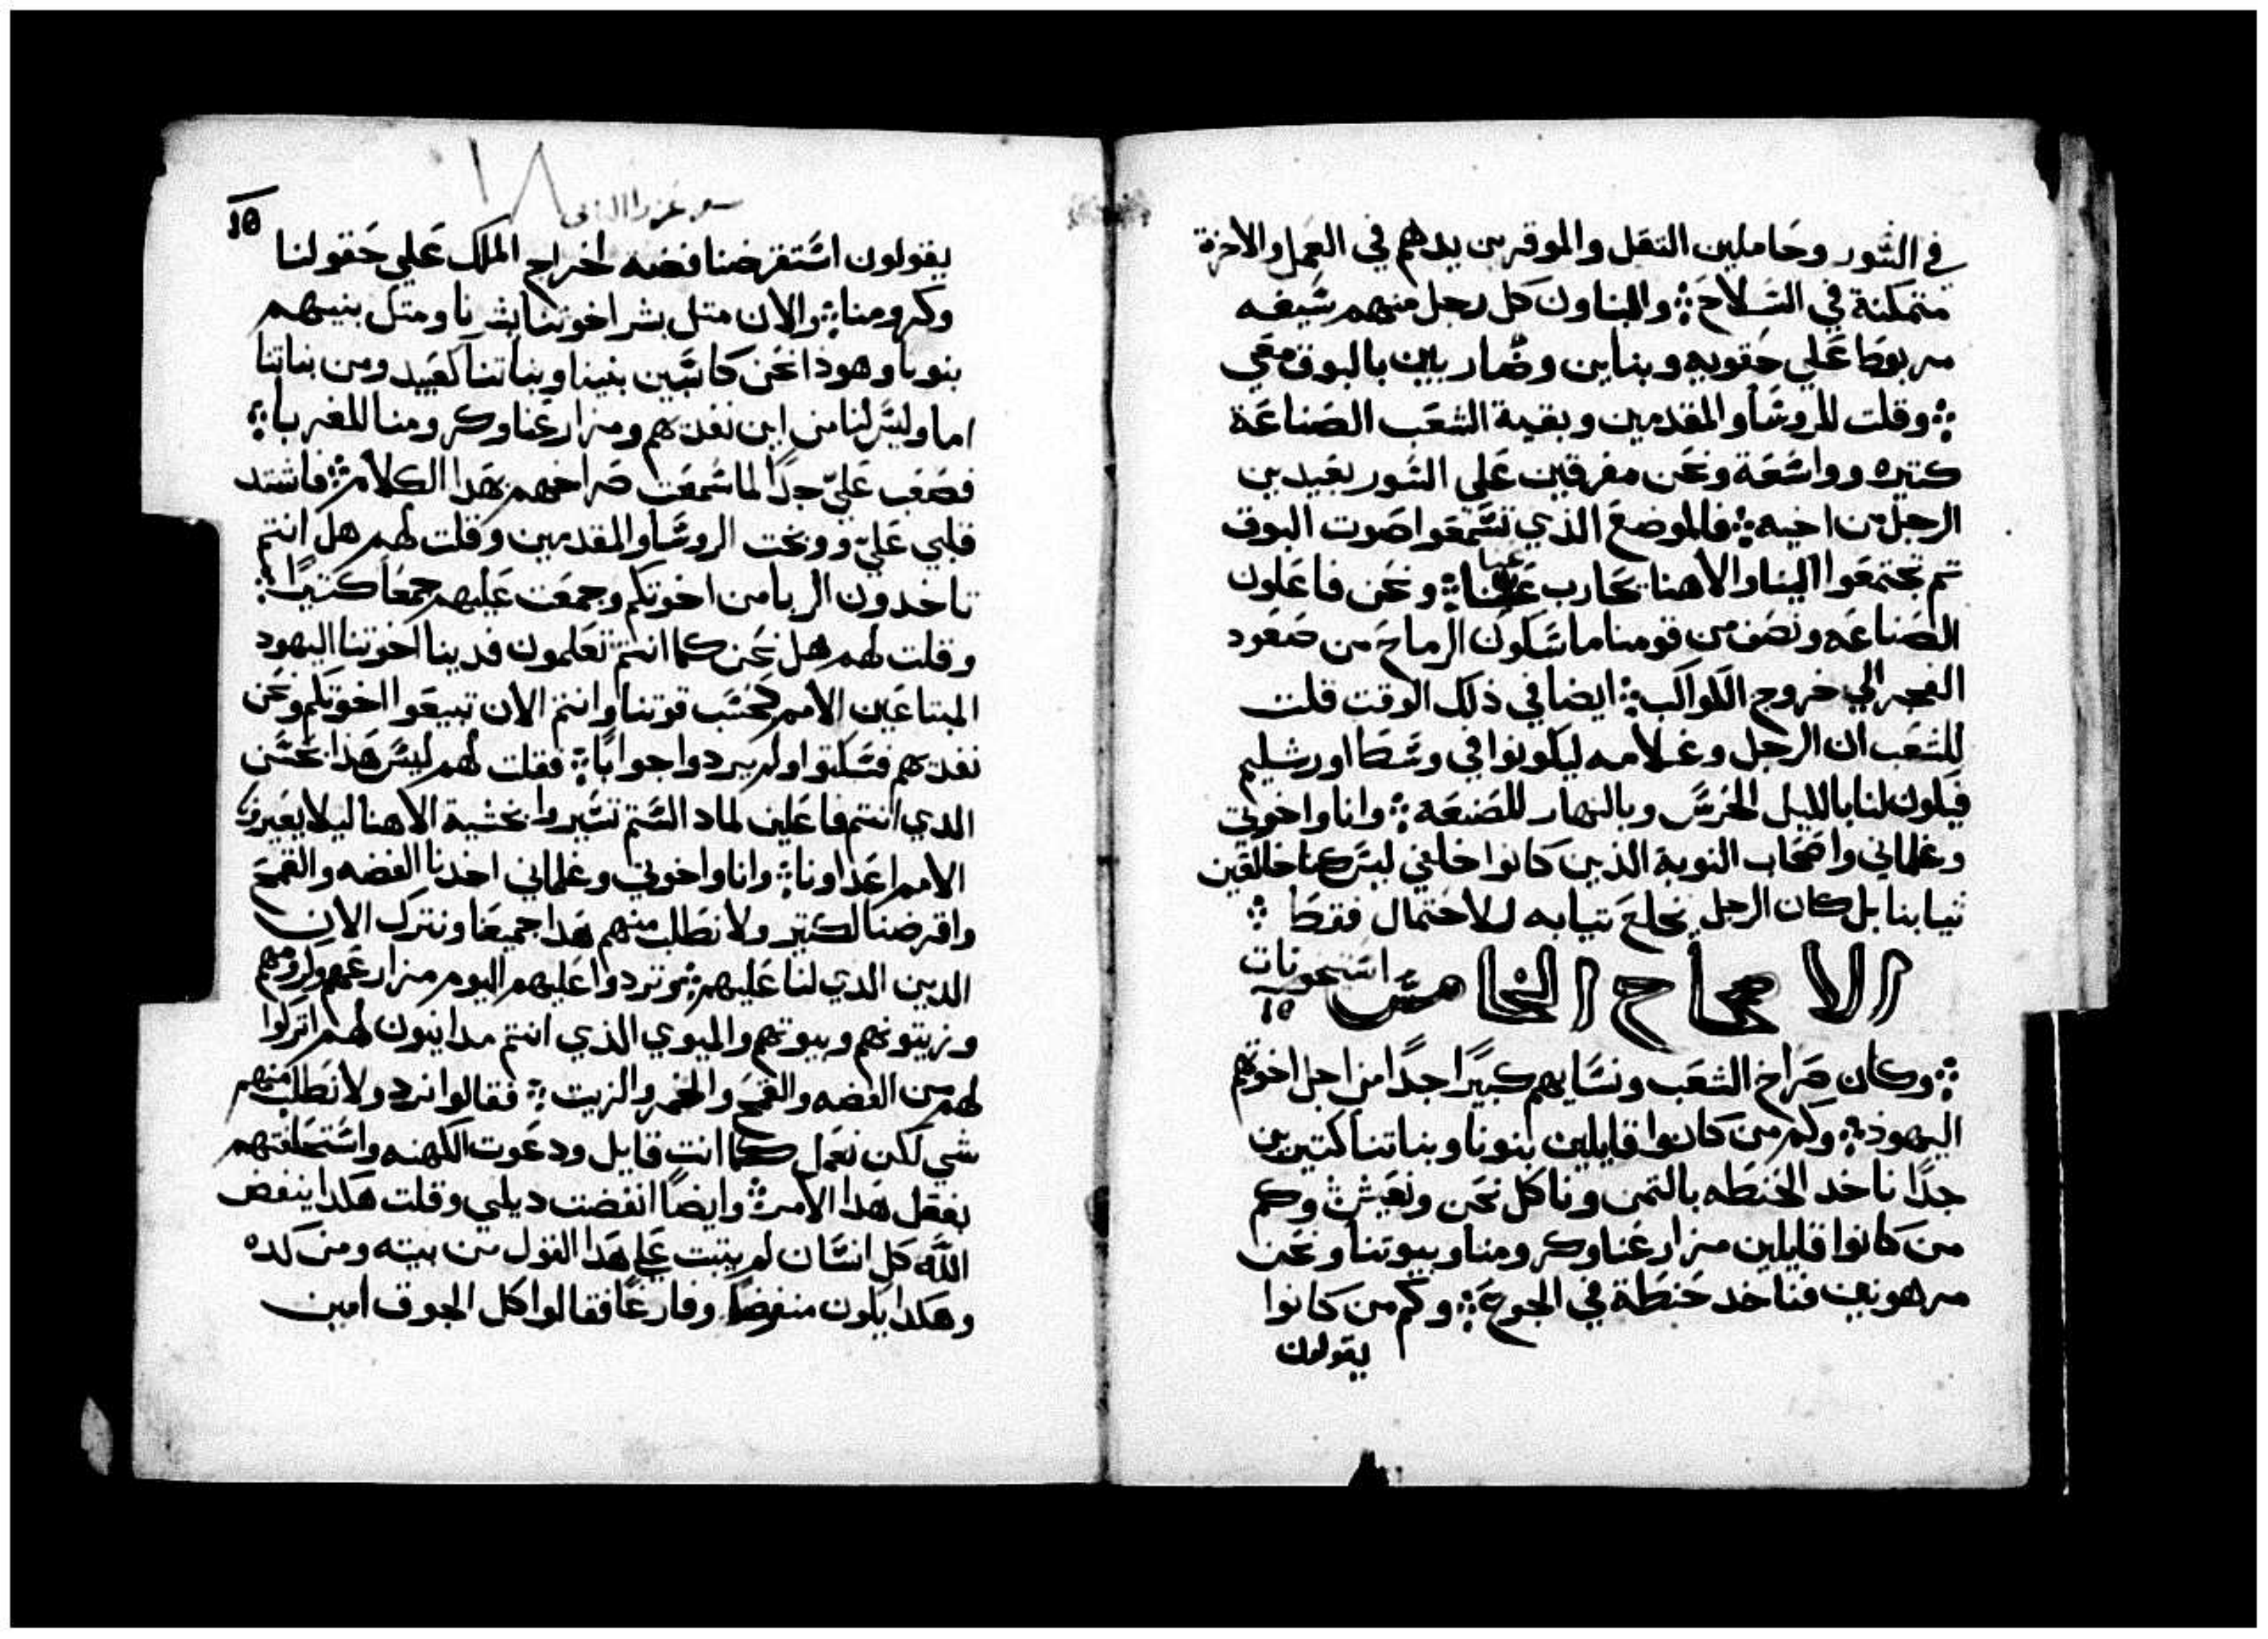 في السور وحاملين التقل والموقرين يدهم في العمل والاخرة
متمكنة في السلاح ܀ والبناون كل رجل منهم سيفه
مربوطا علي حقويه وبناين وضاربين بالبوق معي
܀ وقلت للروسا والمقدمين وبقية الشعب الصناعة
كتيره وواسعة ونحن مفرقين علي السور بعيدين
الرجل من اخيه ܀ فالموضع الذي تسمعوا صوت البوق
تم تجتمعوا الينا والاهنا يحارب عنا ܀ ونحن فاعلون
الصناعه ونصف من قومنا ماسكون الرماح من صعود
الفجر الي خروج الكواكب ܀ ايضا في ذلك الوقت قلت
للشعب ان الرجل وغلامه ليكونوا في وسط اورشليم
فيكون لنا بالليل الحرس وبالنهار للصنعه ܀ وانا واخوتي
وغلماني واصحاب النوبة الذين كانوا خلفي ليس كنا خالقين
تيابنا بل كان الرجل يخلع تيابه للاحتمال فقط ܀
الاصحاح الخامس
استيخونات
١٥
܀ وكان صراخ الشعب ونسايهم كبيرا جدا من اجل اخوتهم
اليهود ܀ وكم من كانوا قايلين بنونا وبناتنا كتيرين
جدا ناخد الحنطه بالتمن وناكل نحن ونعيش ܀ وكم
من كانوا قايلين مزارعنا وكرومنا وبيوتنا ونحن
مرهونين فناخد حنطة في الجوع ܀ وكم من كانوا
يقولون
١٨
سفر عزرا الثاني
يقولون استقرضنا فضه لخراج الملك علي حقولنا
وكرومنا ܀ والان متل بشر اخوتنا بشرنا ومتل بنيهم
بنونا وهوذا نحن كابسين بنينا وبناتنا كعبيد ومن بناتنا
اما وليس لنا من اين نفديهم ومزارعنا وكرومنا للغربا ܀
فصعب علي جدا لما سمعت صراخهم بهدا الكلام ܀ فاشتد
قلبي علي ووبخت الروسا والمقدمين وقلت لهم هل انتم
تاخدون الربا من اخوتكم وجمعت عليهم جمعا كتيرا ܀
وقلت لهم هل نحن كما انتم تعلمون فدينا اخوتنا اليهود
المبتاعين الامم كحسب قوتنا وانتم الان تبيعوا اخوتكم ونحن
نفديهم فسكتوا ولم يردوا جوابا ܀ فقلت لهم ليس هذا بحسن
الدي انتم فاعلين لماد الستم تسيروا بخشية الاهنا ليلا يعيرونا
الامم اعداونا ܀ وانا واخوتي وغلماني اخدنا الفضه والقمح
واقرضنا لكتير ولا نطلب منهم هدا جميعا ونترك الان
الدين الدي لنا عليهم ܀ وتردوا عليهم اليوم مزارعهم وكرومهم
وزيتونهم وبيوتهم والميوي الذي انتم مداينون لهم اتركوا
لهم من الفضه والقمح والخمر والزيت ܀ فقالوا نرد ولا نطلب منهم
شي لكن نعمل كما انت قايل ودعوت الكهنه واستحلفتهم
بفعل هدا الامر ܀ وايضا انفضت ديلي وقلت هكدا ينفض
الله كل انسان لم يتبت علي هدا القول من بيته ومن كده
وهكدا يكون منفوضا وفارغا فقالوا كل الجوق امين